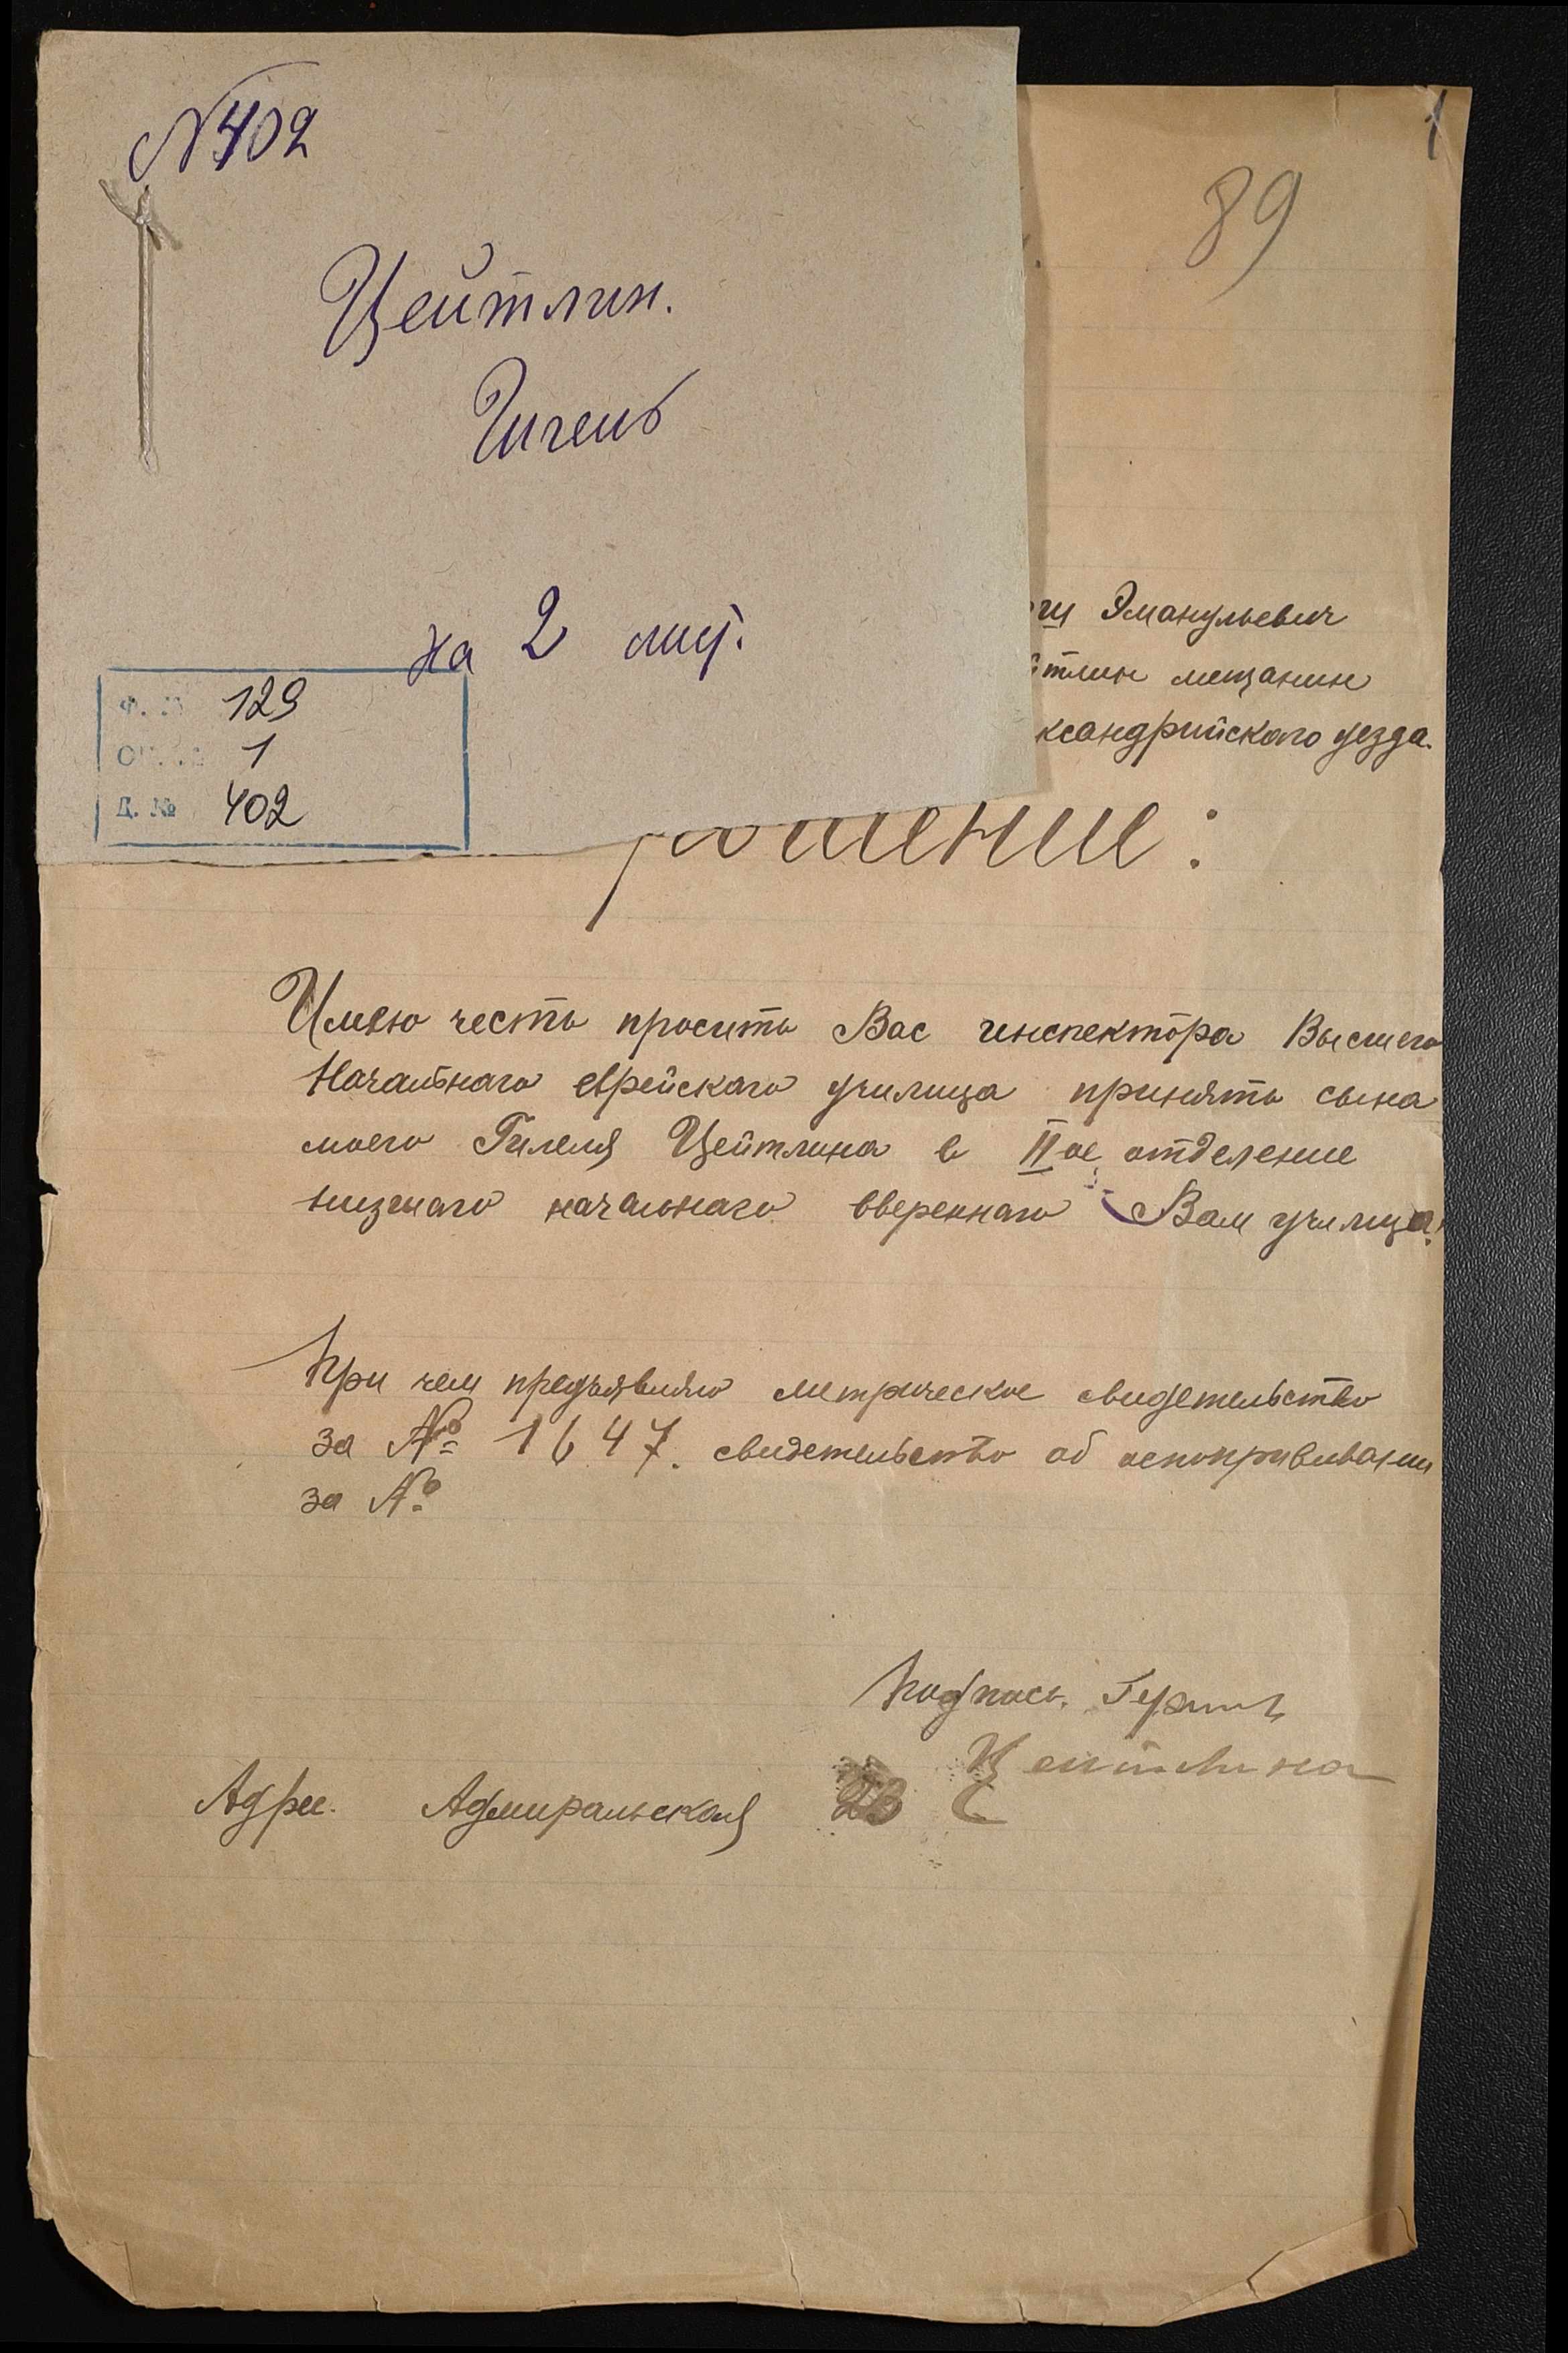 №402
Цейтлин.
Гилель
на 2 лис.
Ф. № 129
Оп. № 1
Д. № 402
1
89
Эманульевич
тлин мещанин
ксандрийского уезда.
ошение:
Имею честь просить Вас инспектора Высшего
Начальнаго еврейскаго училища принять сына
моего Гилеля Цейтлина в II ое отделение
низшаго начальнаго ввереннаго Вам училища.
При чем предъявляю метрическое свидетельство
за № 1647. свидетельство об оспопрививании
за №
Подпись.
Цейтлина
Адрес. Адмиральская 23